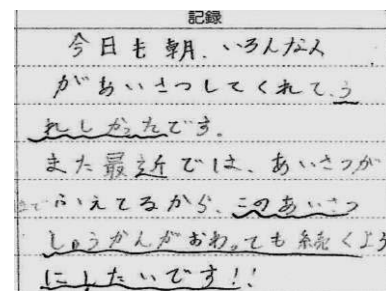 記録
今日も朝、いろんな人
があいさつしてくれて、う
れしかったです。
また最近では、あいさつが
ふえてるから、このあいさつ
しゅうかんがおわっても続くよう
にしたいです!!